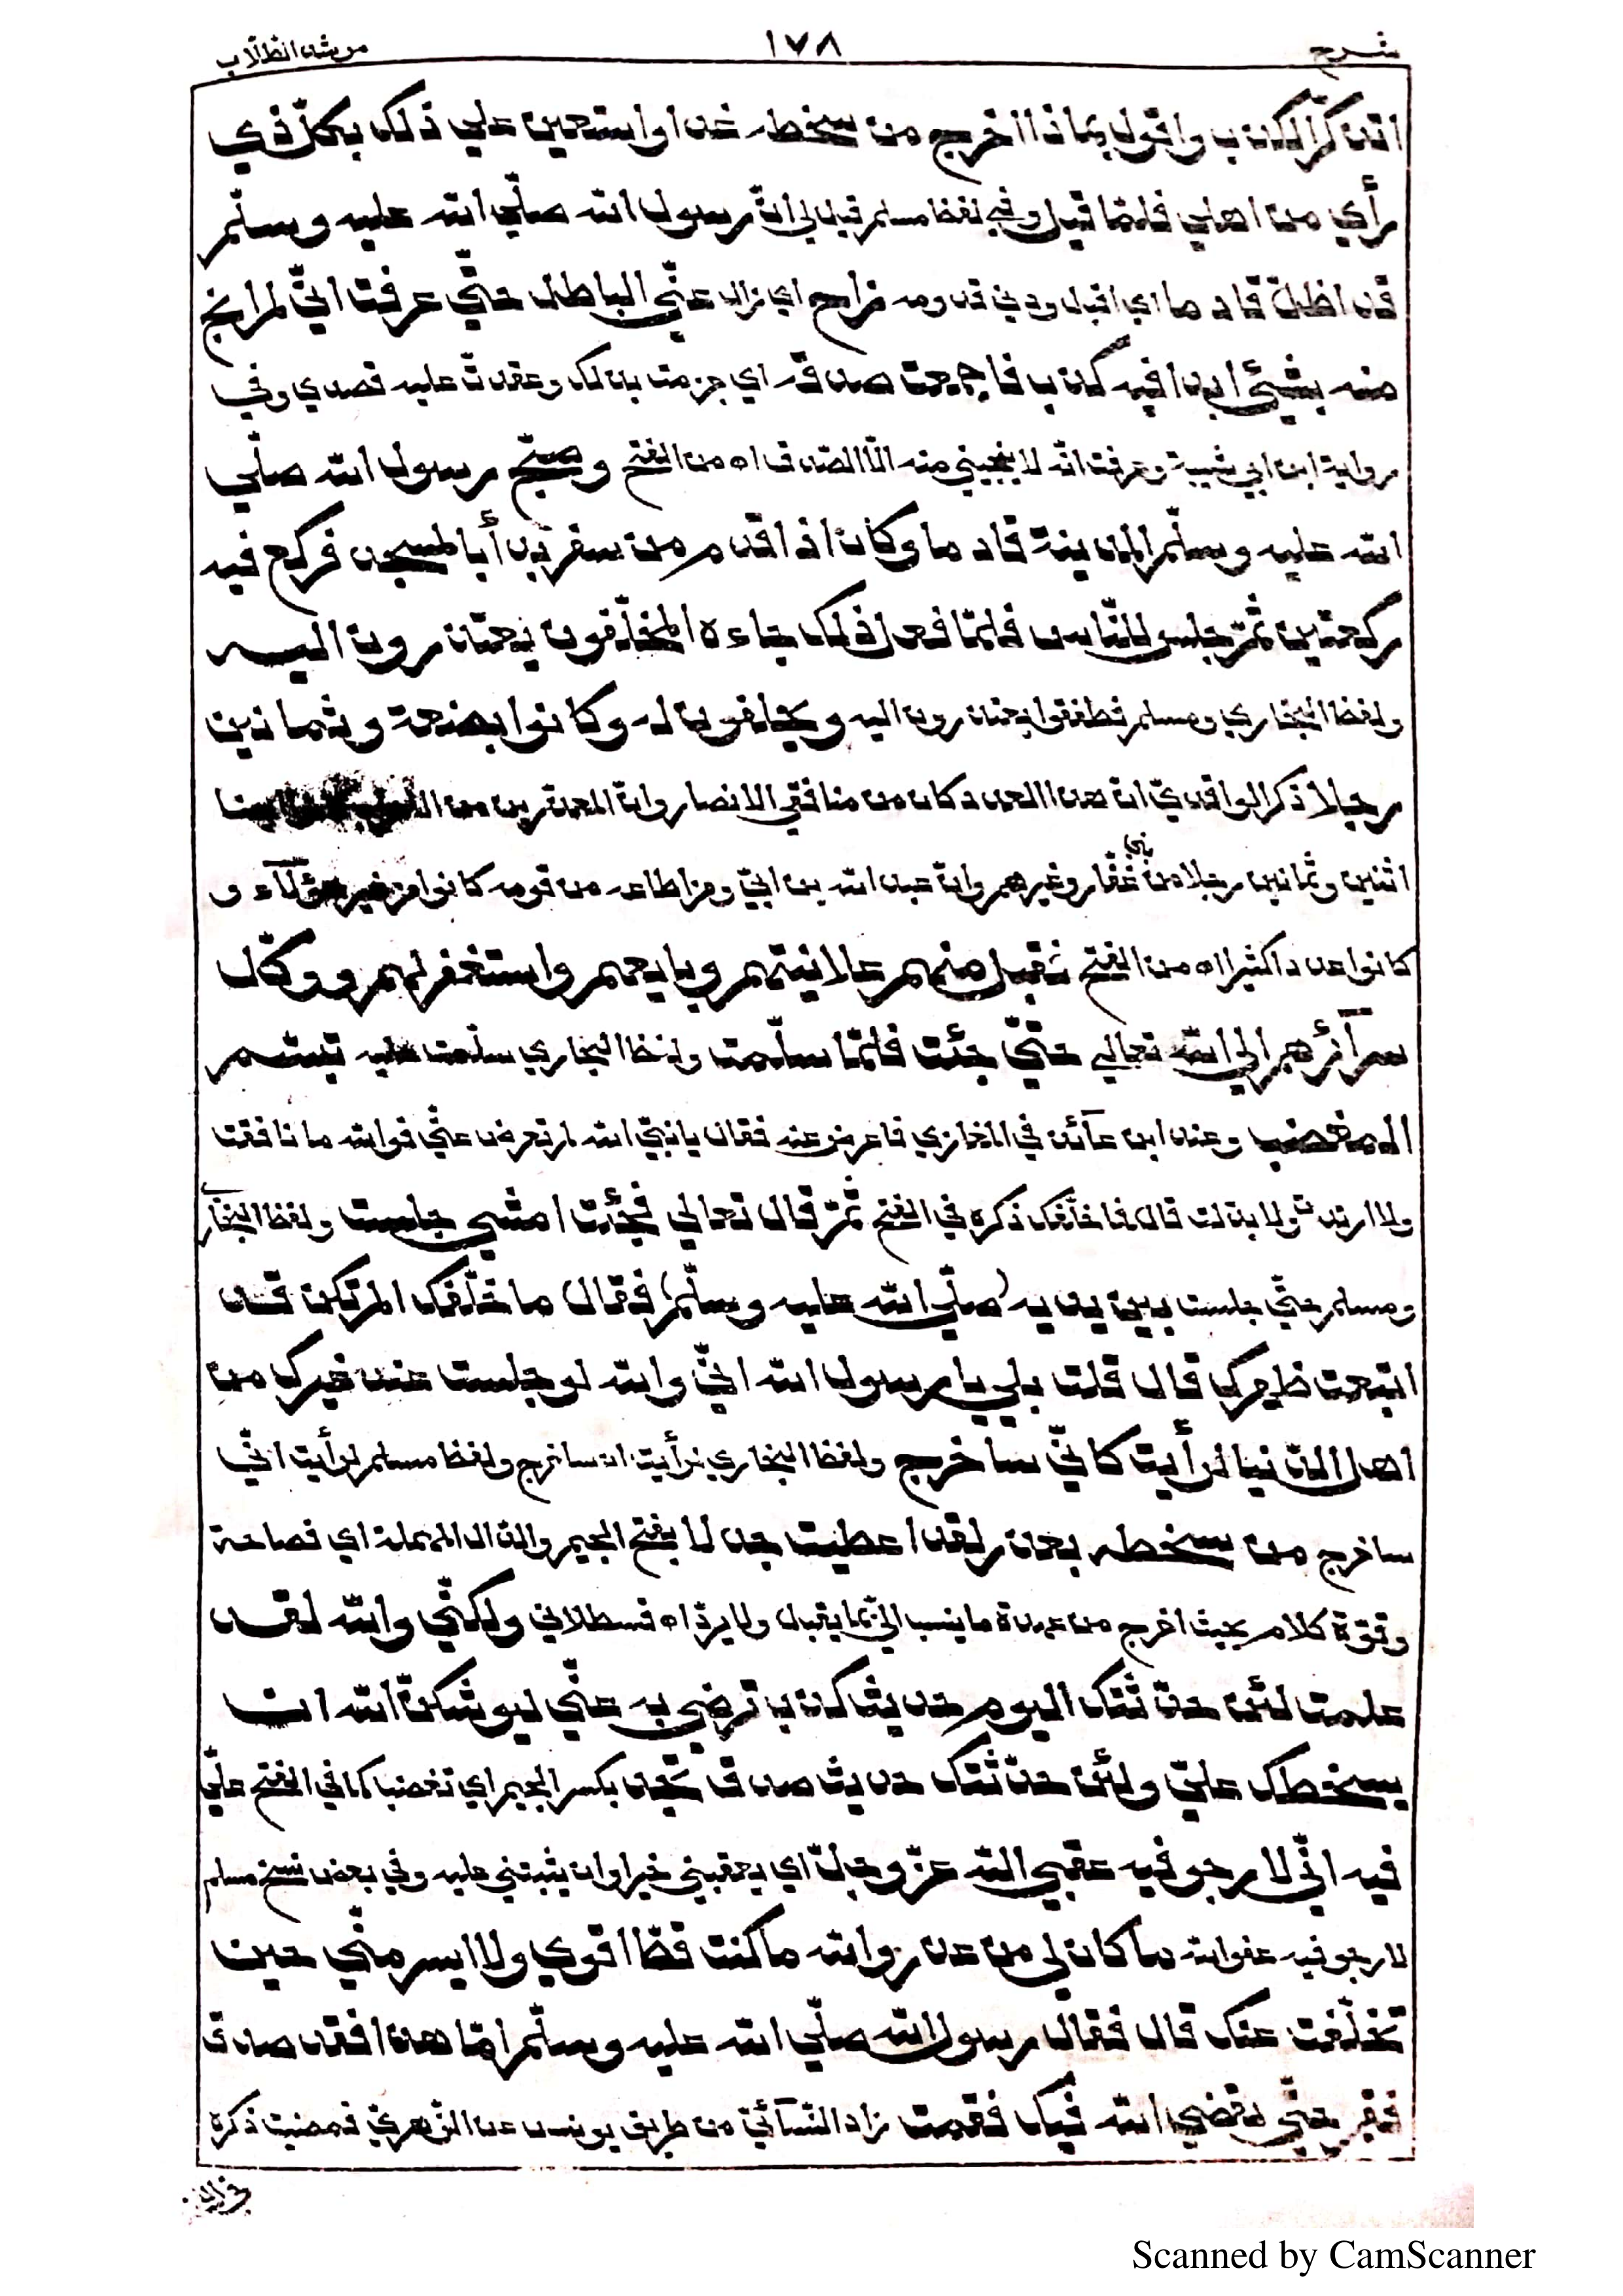 شرح ١٧٨ مرشد الطلّاب
اتذكّر الكذب واقول بماذا اخرج من سخطه غدا واستعين علي ذلك بكلّ ذي
رأي من اهلي فلمّا قيل وفي لفظ مسلم قيل لي انّ رسول الله صلّي الله عليه وسلّم
قد اظلّ قادما اي اقبل ودني قدومه زاح اي زال عنّي الباطل حتّي عرفت انّي لم انج
منه بشيئ ابدا فيه كذب فاجمعت صدقه اي جزمت بذلك وعقدت عليه قصدي وفي
رواية ابن ابي شيبة وعرفت انّه لا ينجيني منه الّا الصدق اه من الفتح وصبّح رسول الله صلّي
الله عليه وسلّم المدينة قادما وكان اذا قدم من سفر بدأ بالمسجد فركع فيه
ركعتين ثمّ جلس للنّاس فلمّا فعل ذلك جاءه المخلّفون يعتذرون اليه
ولفظ البخاري ومسلم فطفقوا يعتذرون اليه ويحلفون له وكانوا بضعة وثمانين
رجلا ذكر الواقديّ ان هذا العدد كان من منافقي الانصار وانّ المعذرين من ايضا
اثنين وثمانين رجلا من بني غفّار وغيرهم وانّ عبد الله بن ابيّ ومن اطاعه من قومه كانوا من غير هؤلآء و
كانوا عددا كثيرا اه من الفتح فقبل منهم علانيتهم وبايعهم واستغفر لهم ووكّل
سرآئرهم الي الله تعالي حتّي جئت فلمّا سلّمت ولفظ البخاري سلّمت عليه تبسّم
المغضب وعند ابن عآئذ في المغازي فاعرض عنه فقال يا نبيّ الله لم تعرض عنّي فوالله ما نافقت
ولا ارتبت ولا بدّلت قال فما خلّفك ذكره في الفتح ثمّ قال تعالي فجئت امشي جلست ولفظ البخاري
ومسلم حتّي جلست بين يديه (صلّي الله عليه وسلّم) فقال ما خلّفك الم تكن قد
ابتعت ظهرك قال قلت بلي يا رسول الله انّي والله لو جلست عند غيرك من
اهل الدّنيا لرأيت كانّي ساخرج ولفظ البخاري لرأيت ان ساخرج ولفظ مسلم لرأيت انّي
ساخرج من سخطه بعذر لقد اعطيت جدلا بفتح الجيم والدّال المهملة اي فصاحة
وقوّة كلام بحيث اخرج من عهدة ما ينسب اليّ بما يقبل ولا يردّ اه قسطلاني ولكنّي والله لقد
علمت لئن حدّثتك اليوم حديث كذب ترضي به عنّي ليوشكنّ الله ان
يسخطك عليّ ولئن حدّثتك حديث صدق تجد بكسر الجيم اي تغضبا كما في الفتح عليّ
فيه انّي لارجو فيه عقبي الله عزّ وجلّ اي يعقبني خيرا وان يثبتني عليه وفي بعض نسخ مسلم
لارجو فيه عفو الله ما كان لي من عذر والله ما كنت قطّ اقوي ولا ايسر منّي حين
تخلّفت عنك قال فقال رسول الله صلّي الله عليه وسلّم امّا هذا فقد صدق
فقم حتّي يقضي الله فيك فقمت زاد النّسآئيّ من طريق يونس عن الزّهريّ فمضيت ذكره
Scanned by CamScanner